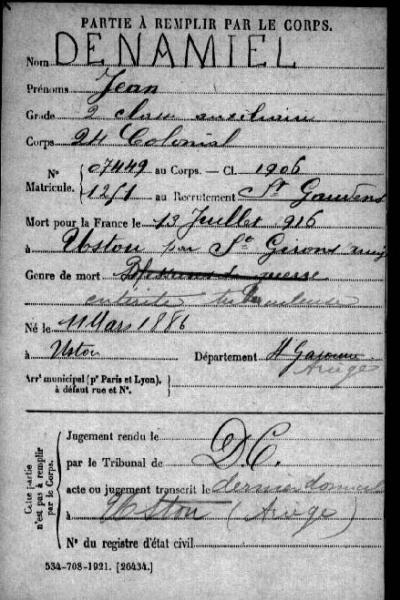 PARTIE À REMPLIR PAR LE CORPS.
Nom DENAMIEL
Prénoms Jean
Grade 2 classe auxiliaire
Corps 24 Colonial
N° Matricule. 07449 au Corps. — Cl. 1906
1251 au Recrutement St Gaudens
Mort pour la France le 13 Juillet 916
à Ustou par St Girons
Genre de mort Blessures de guerre
entérite tuberculeuse
Né le 11 Mars 1886
à Ustou Département Hte Garonne
Ariège
Arrt municipal (pr Paris et Lyon), à défaut rue et N°.
Cette partie n'est pas à remplir par le Corps.
Jugement rendu le
par le Tribunal de DC.
acte ou jugement transcrit le dernier domicile
à Ustou (Ariège)
N° du registre d'état civil
534-708-1921. [26434.]